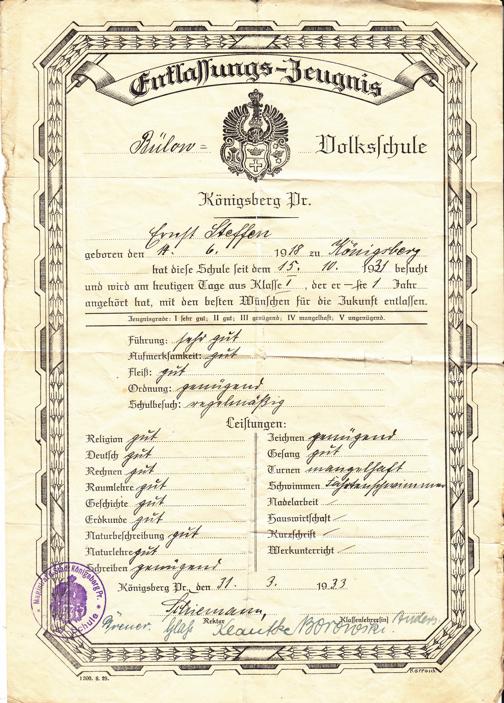 Entlassungs-Zeugnis
Bülow= Volksschule
Königsberg Pr.
Ernst Steffen
geboren den 14. 6. 1918 zu Königsberg
hat diese Schule seit dem 15. 10. 1931 besucht
und wird am heutigen Tage aus Klasse 1, der er —sie 1 Jahr
angehört hat, mit den besten Wünschen für die Zukunft entlassen.
Zeugnisgrade: I sehr gut; II gut; III genügend; IV mangelhaft; V ungenügend.
Führung: sehr gut
Aufmerksamkeit: gut
Fleiß: gut
Ordnung: genügend
Schulbesuch: regelmäßig
Leistungen:
Religion gut
Deutsch gut
Rechnen gut
Raumlehre gut
Geschichte gut
Erdkunde gut
Naturbeschreibung gut
Naturlehre gut
Schreiben genügend
Zeichnen genügend
Gesang gut
Turnen mangelhaft
Schwimmen Fahrtenschwimmer
Nadelarbeit
Hauswirtschaft
Kurzschrift
Werkunterricht
Königsberg Pr., den 31. 3. 1933
Rektor Klassenlehrer(in)
Borowski.
1300. 8. 29.